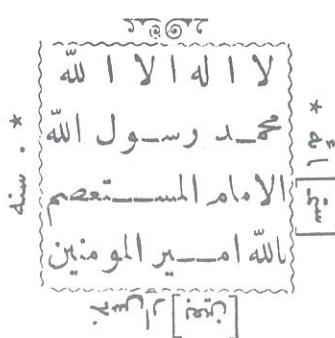 لا ا له ا لا ا لله
محمـد رسـول الله
الامام المسـتعصم
بالله امـير المومنين
سنه